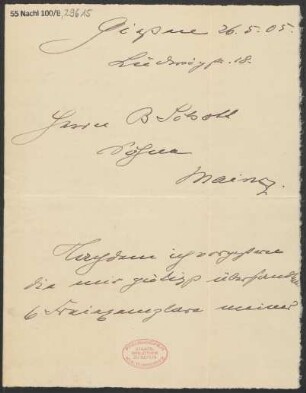 55 Nachl 100/B,
Giessen 26.5.05.
Ludwigstr. 18.
Herrn B Schott
Söhne
Mainz.
Nachdem ich vorgestern
die mir gütigst übersandten
6 Freiexemplare meiner